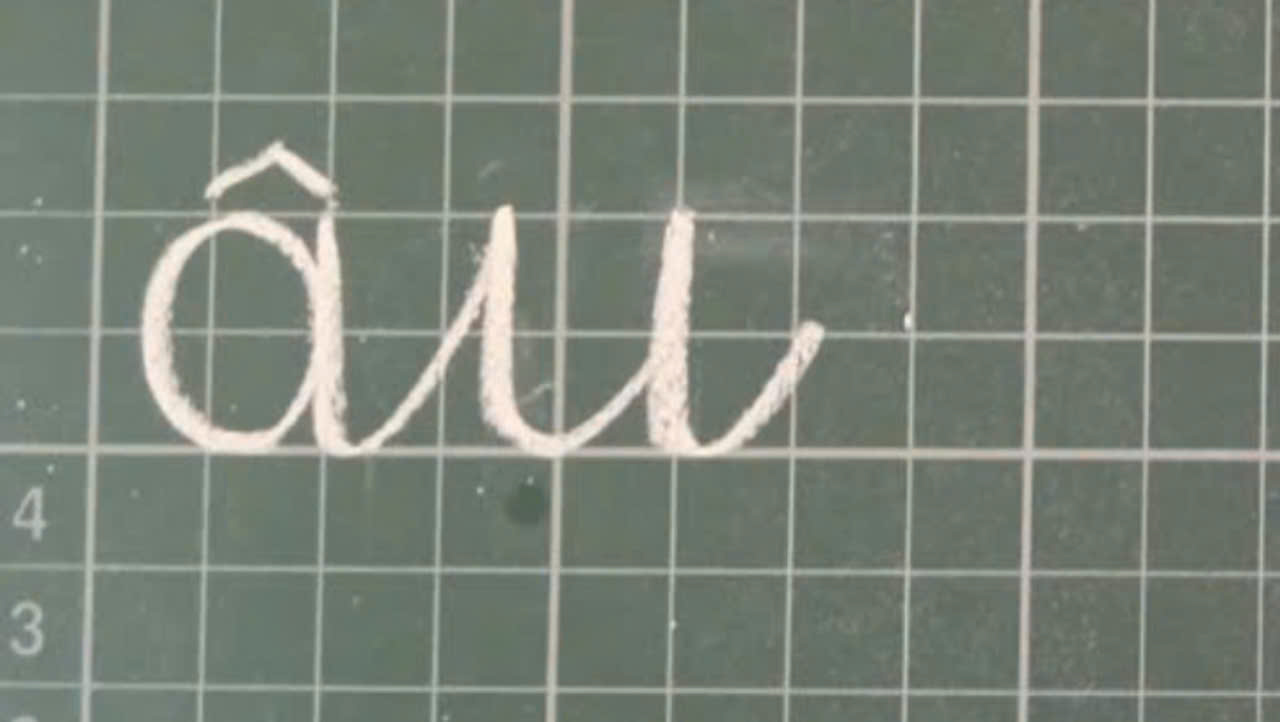 âu
4
3